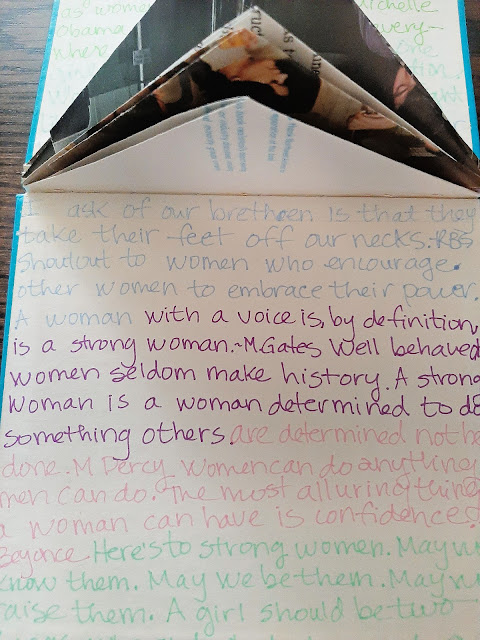 as women
Michelle
Obama
every-
where
one
I ask of our brethren is that they
take their feet off our necks.-RBG
Shoutout to women who encourage
other women to embrace their power.
A woman with a voice is, by definition,
is a strong woman.~M.Gates Well behaved
women seldom make history. A strong
woman is a woman determined to do
something others are determined not be
done. M Percy Women can do anything
men can do. The most alluring thing
a woman can have is confidence.
Beyonce. Here's to strong women. May w
know them. May we be them. May w
raise them. A girl should be two